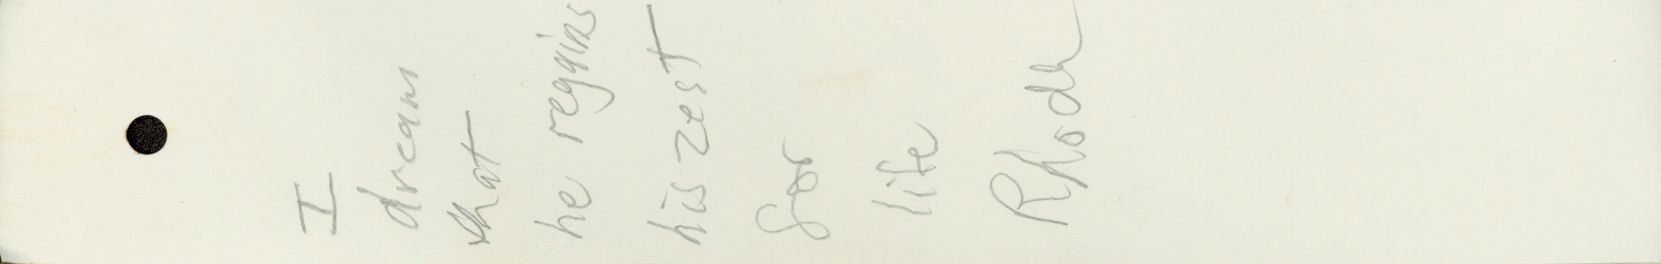 I
dream
that
he regains
his zest
for
life
Rhoda